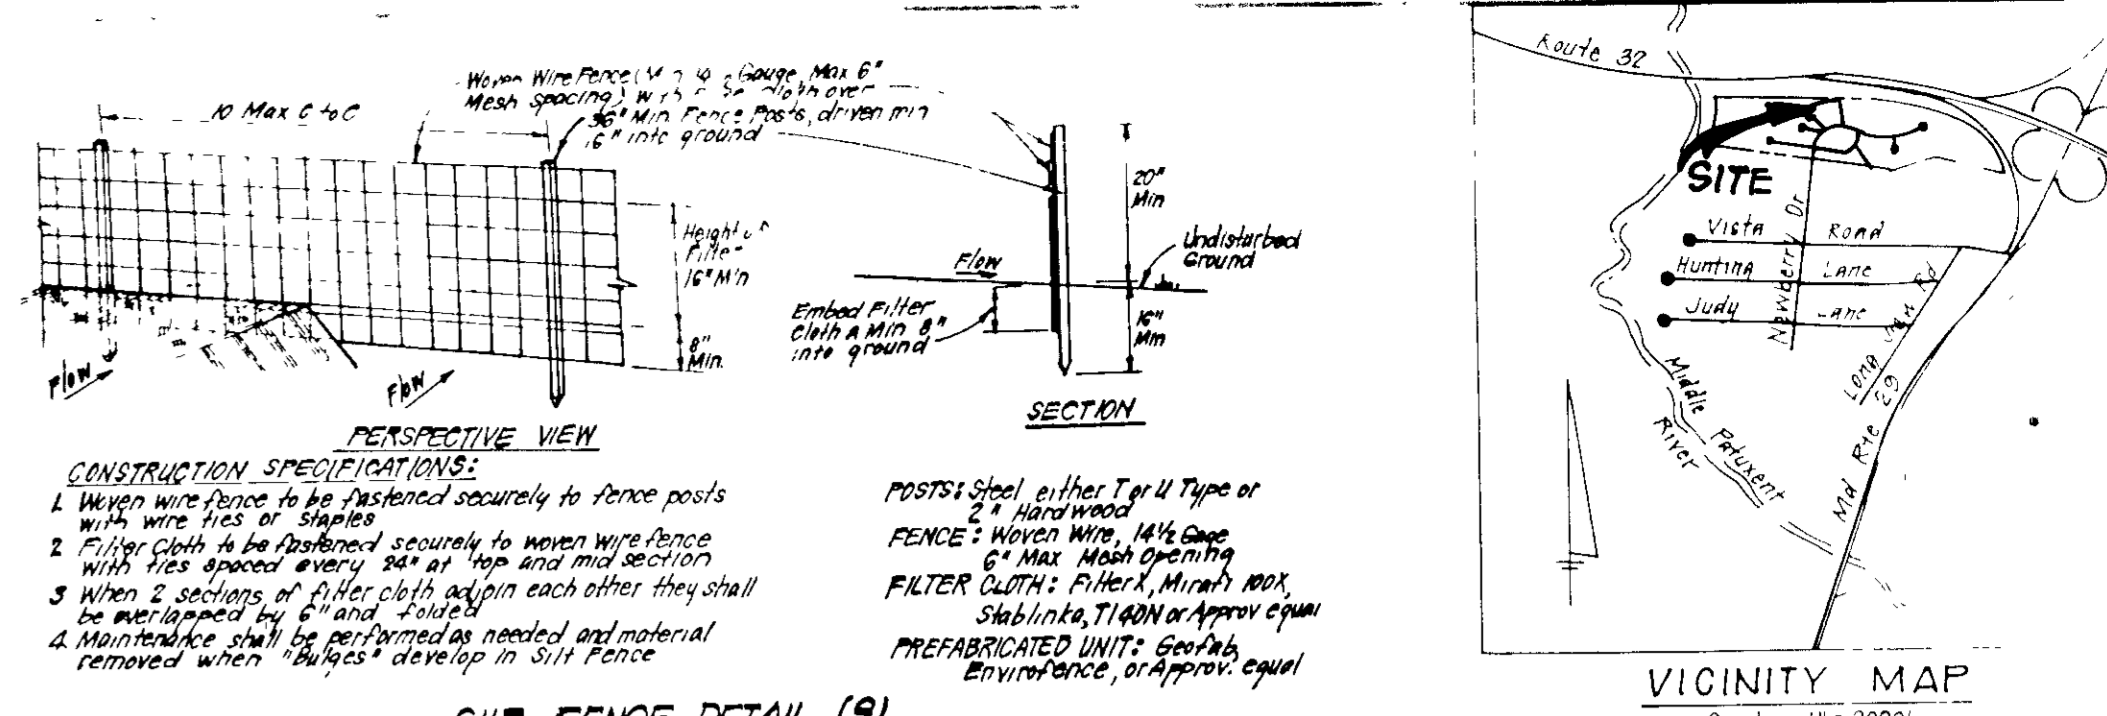 Woven Wire Fence (Min 14 ½ Gauge, Max 6"
Mesh Spacing) with cloth over
36" Min Fence Posts, driven min
16" into ground
10 Max C to C
Height of
Filter
16" Min
8"
Min.
Flow
Flow
PERSPECTIVE VIEW
20"
Min
Undisturbed
Ground
Flow
Embed Filter
Cloth a Min 8"
into ground
16"
Min
SECTION
CONSTRUCTION SPECIFICATIONS:
1. Woven wire fence to be fastened securely to fence posts
with wire ties or staples
2 Filter Cloth to be fastened securely to woven wire fence
with ties spaced every 24" at top and mid section
3 When 2 sections of filter cloth adjoin each other they shall
be overlapped by 6" and folded
4. Maintenance shall be performed as needed and material
removed when "Bulges" develop in Silt Fence
POSTS: Steel either T or U Type or
2" Hardwood
FENCE: Woven Wire, 14½ Gage
6" Max Mesh Opening
FILTER CLOTH: Filter X, Mirafi 100X,
Stablinka, T140N or Approv equal
PREFABRICATED UNIT: Geofab,
Envirofence, or Approv. equal
SILT FENCE DETAIL
Route 32
SITE
Newberry Dr
Vista Road
Hunting Lane
Judy Lane
Rd
Md Rte 29
Middle
Patuxent
River
VICINITY MAP